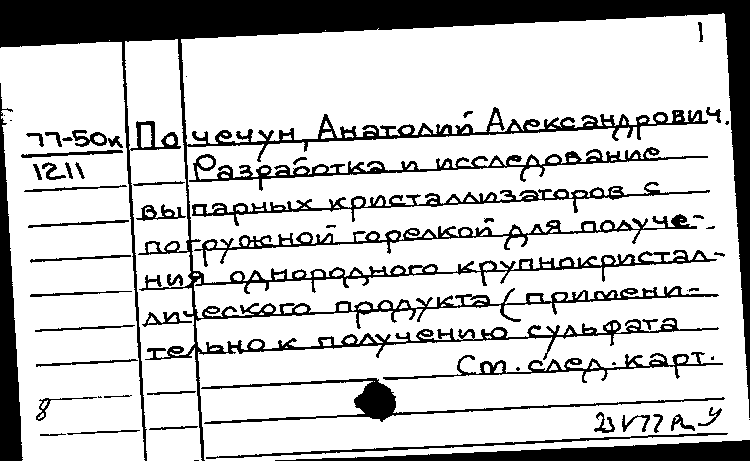 1
77-50к Почечун, Анатолий Александрович.
1211 Разработка и исследование
выпарных кристаллизаторов с
погружной горелкой для получе-
ния однородного крупнокристал-
лического продукта (примени-
тельно к получению сульфата
См. след. карт.
8
23 V 77